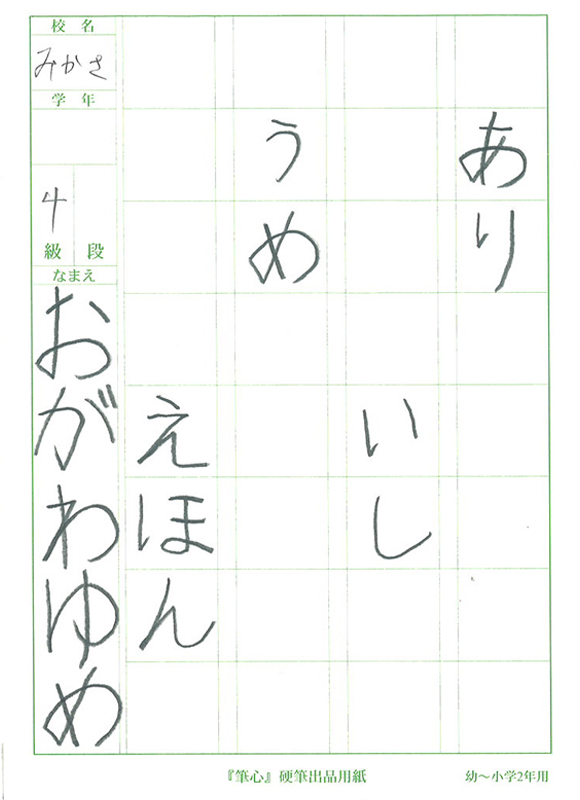 あり
いし
うめ
えほん
校名
みかさ
学年
4
級 段
なまえ
おがわゆめ
『筆心』硬筆出品用紙
幼〜小学2年用